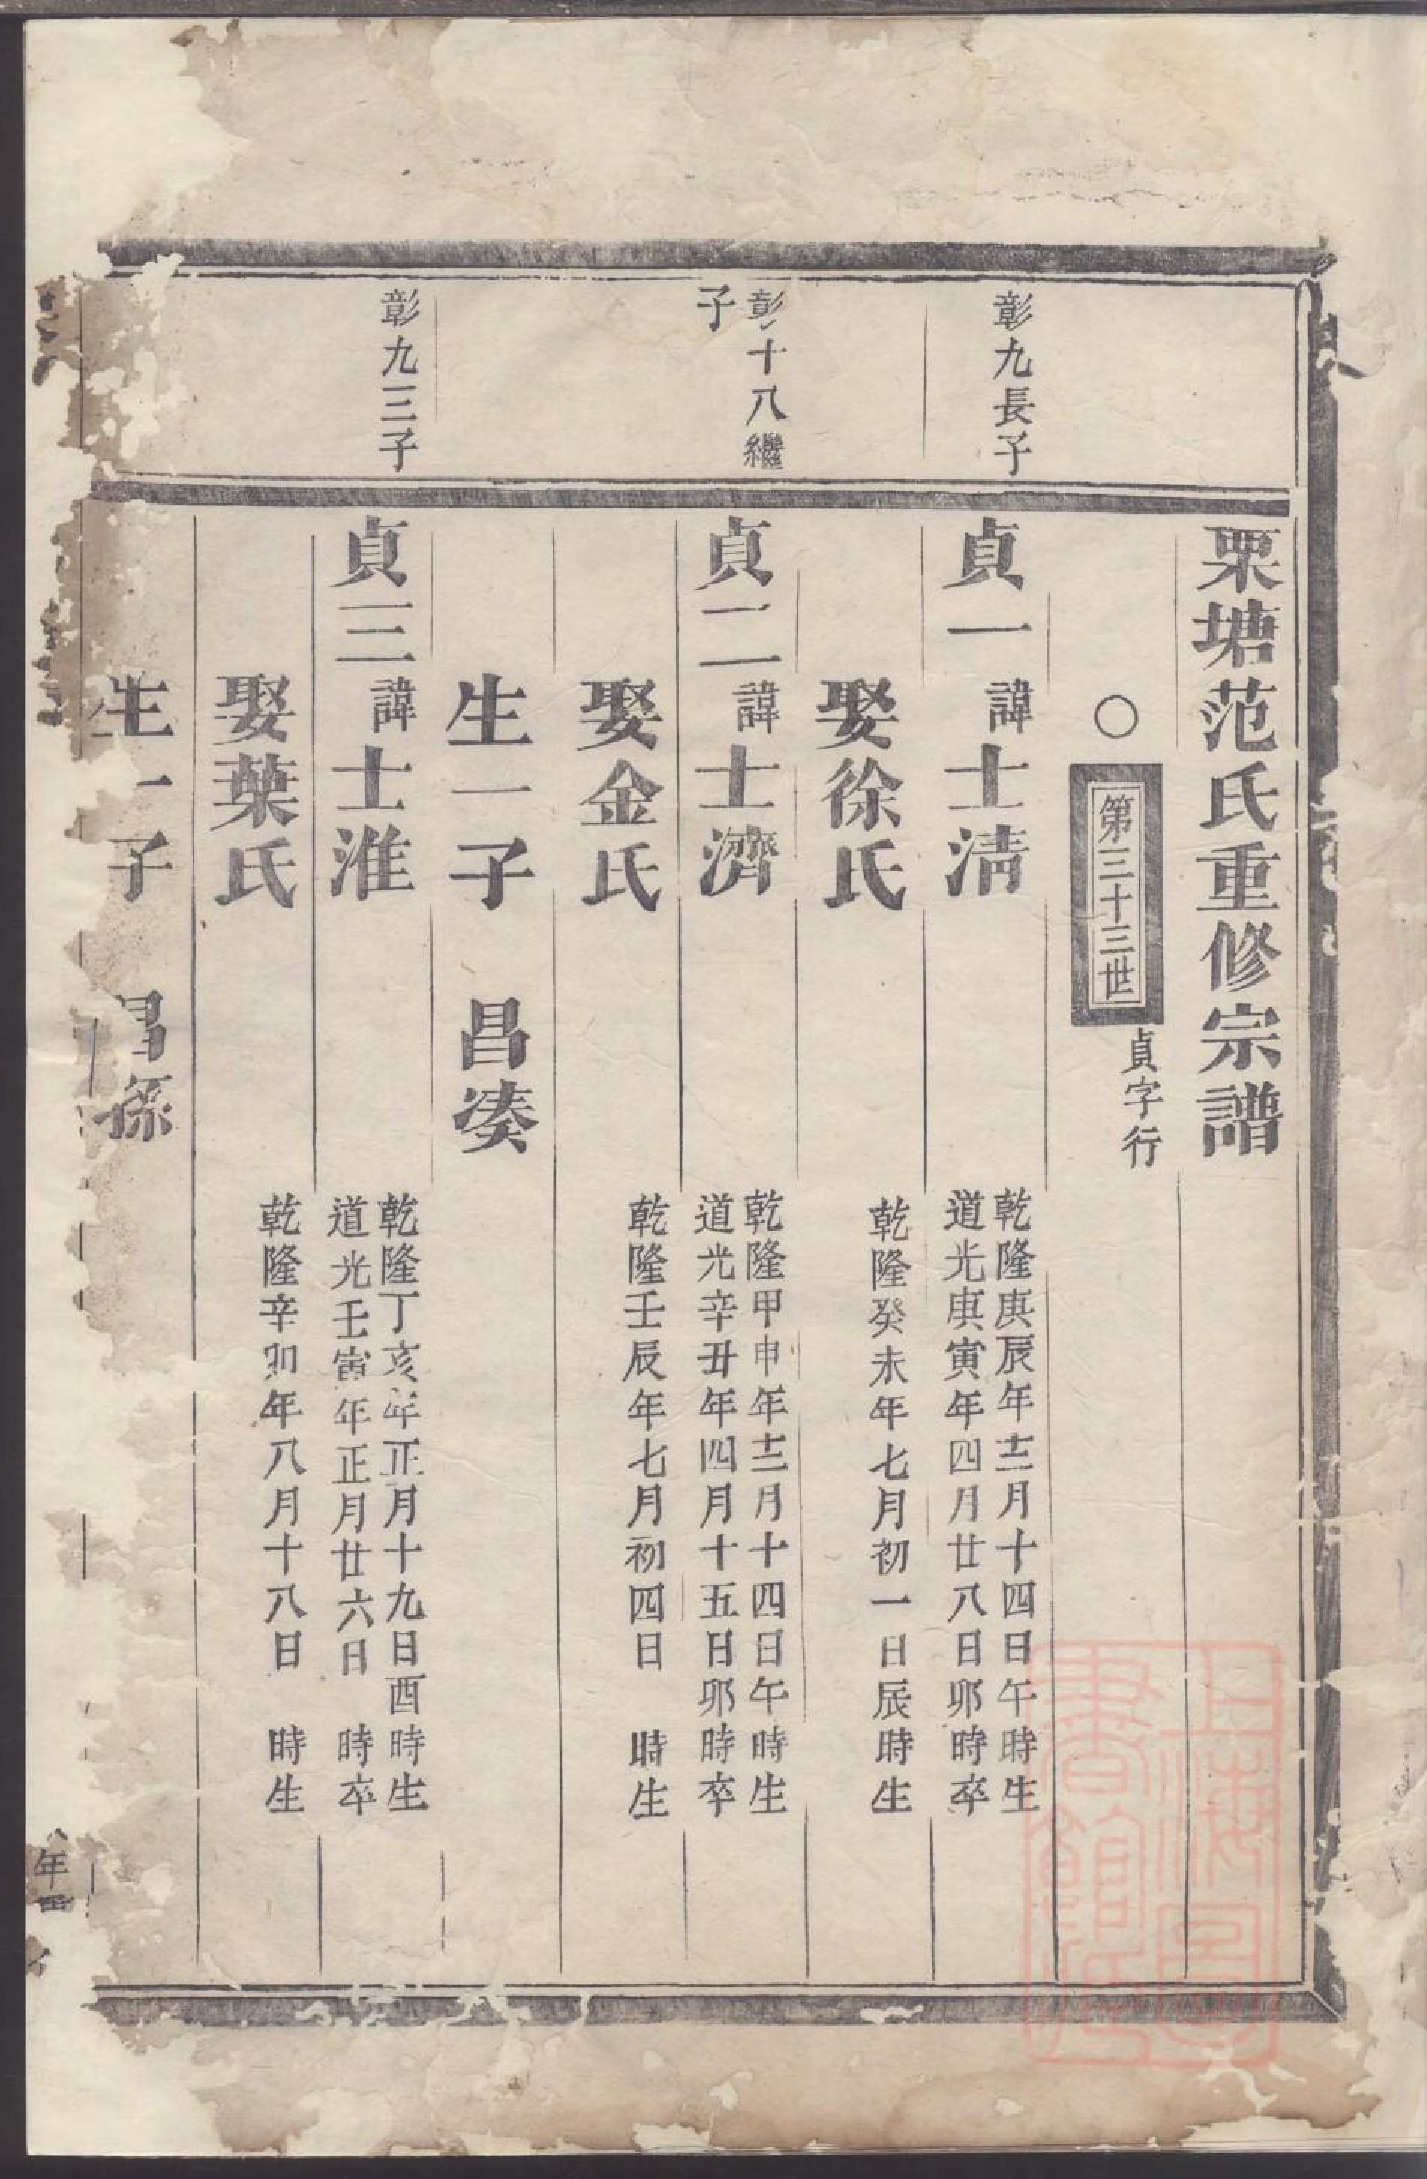 栗塘范氏重修宗譜
○第三十三世
貞字行
彰九長子
貞一諱士清
乾隆庚辰年十二月十四日午時生
道光庚寅年四月廿八日卯時卒
娶徐氏
乾隆癸未年七月初一日辰時生
彰十八繼
子
貞二諱士濟
乾隆甲申年十二月十四日午時生
道光辛丑年四月十五日卯時卒
娶金氏
乾隆壬辰年七月初四日 時生
生一子 昌湊
彰九三子
貞三諱士淮
乾隆丁亥年正月十九日酉時生
道光壬寅年正月廿六日 時卒
娶葉氏
乾隆辛卯年八月十八日 時生
生一子 昌孫
年
上海圖
書館藏